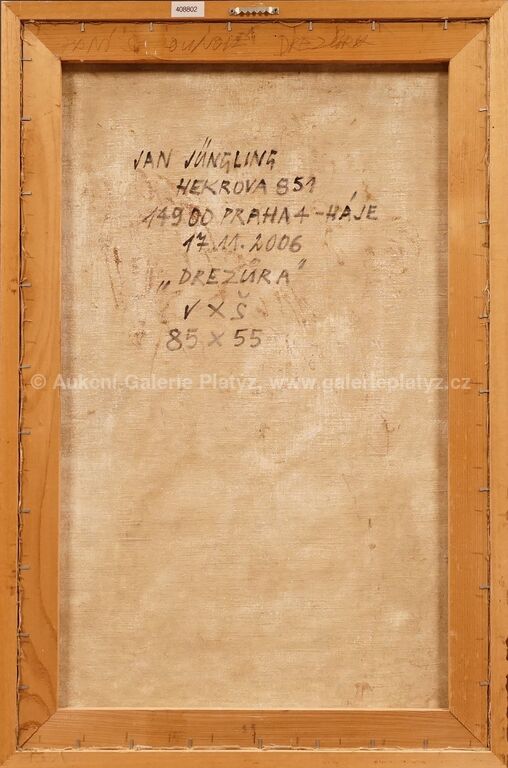 408802
JAN JÜNGLING DREZÚRA
JAN JÜNGLING
HEKROVA 851
149 00 PRAHA 4 - HÁJE
17.11.2006
„DREZŮRA"
V X Š
85 X 55
© Aukční Galerie Platýz, www.galerieplatyz.cz